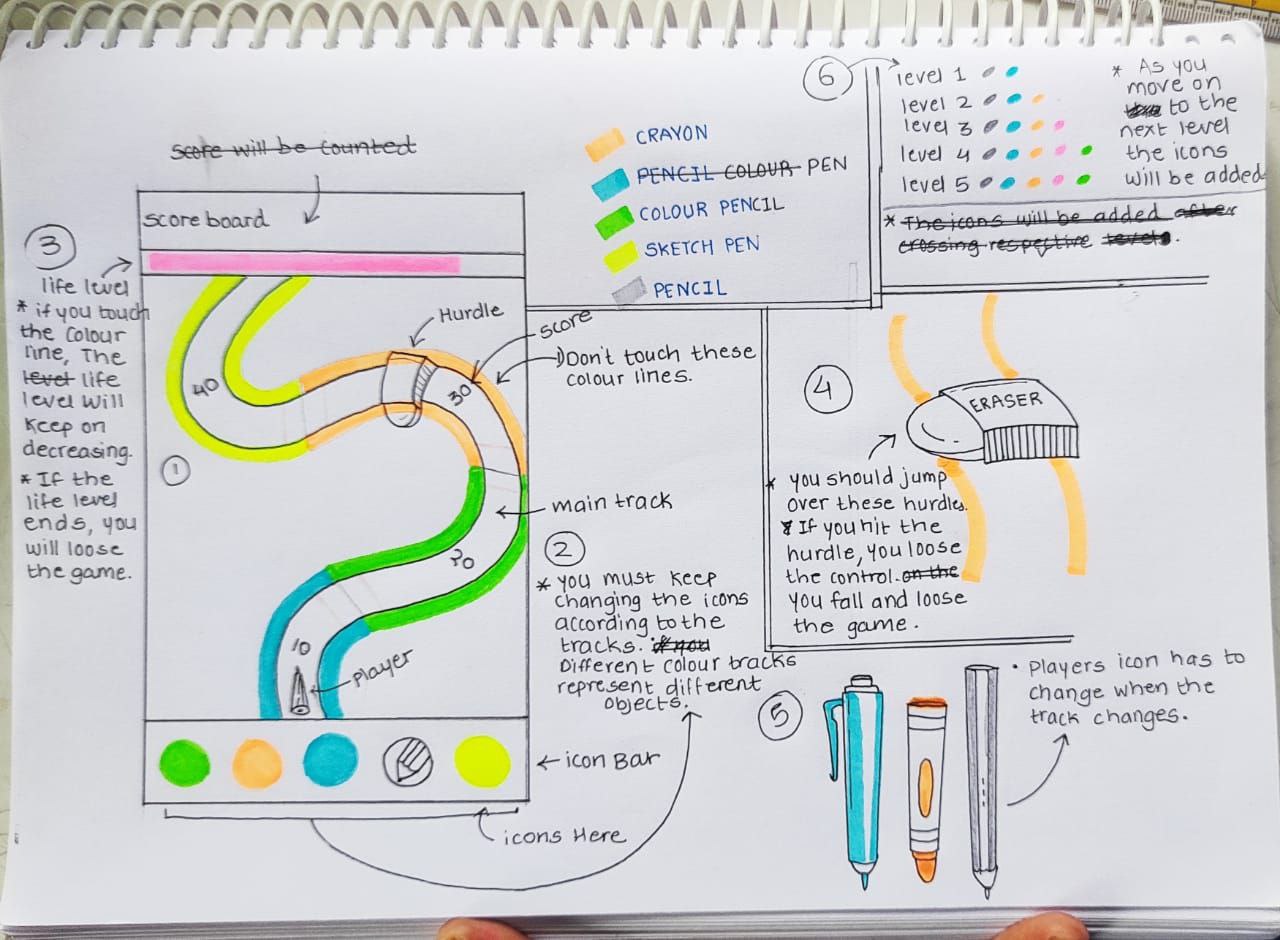 score will be counted
score board
3
life level
* if you touch
the colour
line, The
level life
level will
keep on
decreasing.
* If the
life level
ends, you
will loose
the game.
CRAYON
PENCIL COLOUR PEN
COLOUR PENCIL
SKETCH PEN
PENCIL
6
level 1
level 2
level 3
level 4
level 5
* As you
move on
to the
next level
the icons
will be added
* The icons will be added after
crossing respective levels.
Hurdle
score
Don't touch these
colour lines.
40
30
1
main track
20
10
Player
2
* you must keep
changing the icons
according to the
tracks. if you
Different colour tracks
represent different
objects.
icon Bar
icons Here
4
ERASER
* you should jump
over these hurdles.
* If you hit the
hurdle, you loose
the control. on the
you fall and loose
the game.
5
• Players icon has to
change when the
track changes.